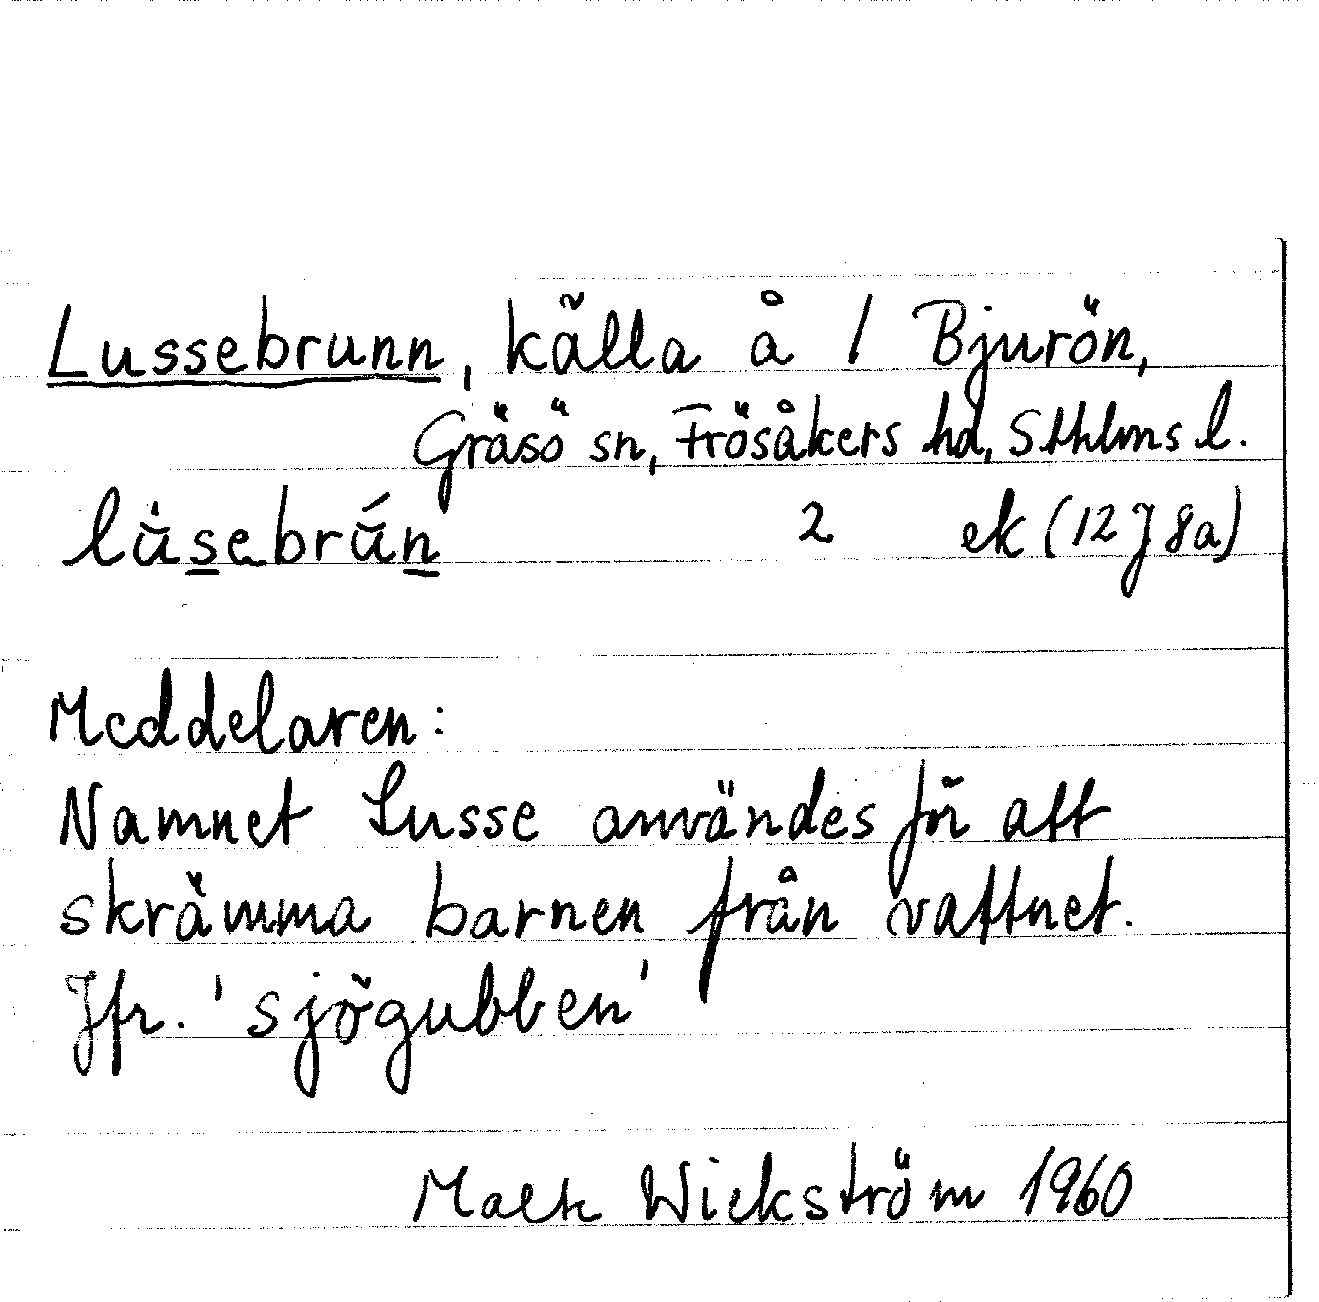 Lussebrunn, källa å / Bjurön,
Gräsö sn, Frösåkers hd, Sthlms l.
lùsebrún 2 ek (12 J 8a)
Meddelaren:
Namnet Lusse användes för att
skrämma barnen från vattnet.
Jfr. 'sjögubben'
Wickström 1960